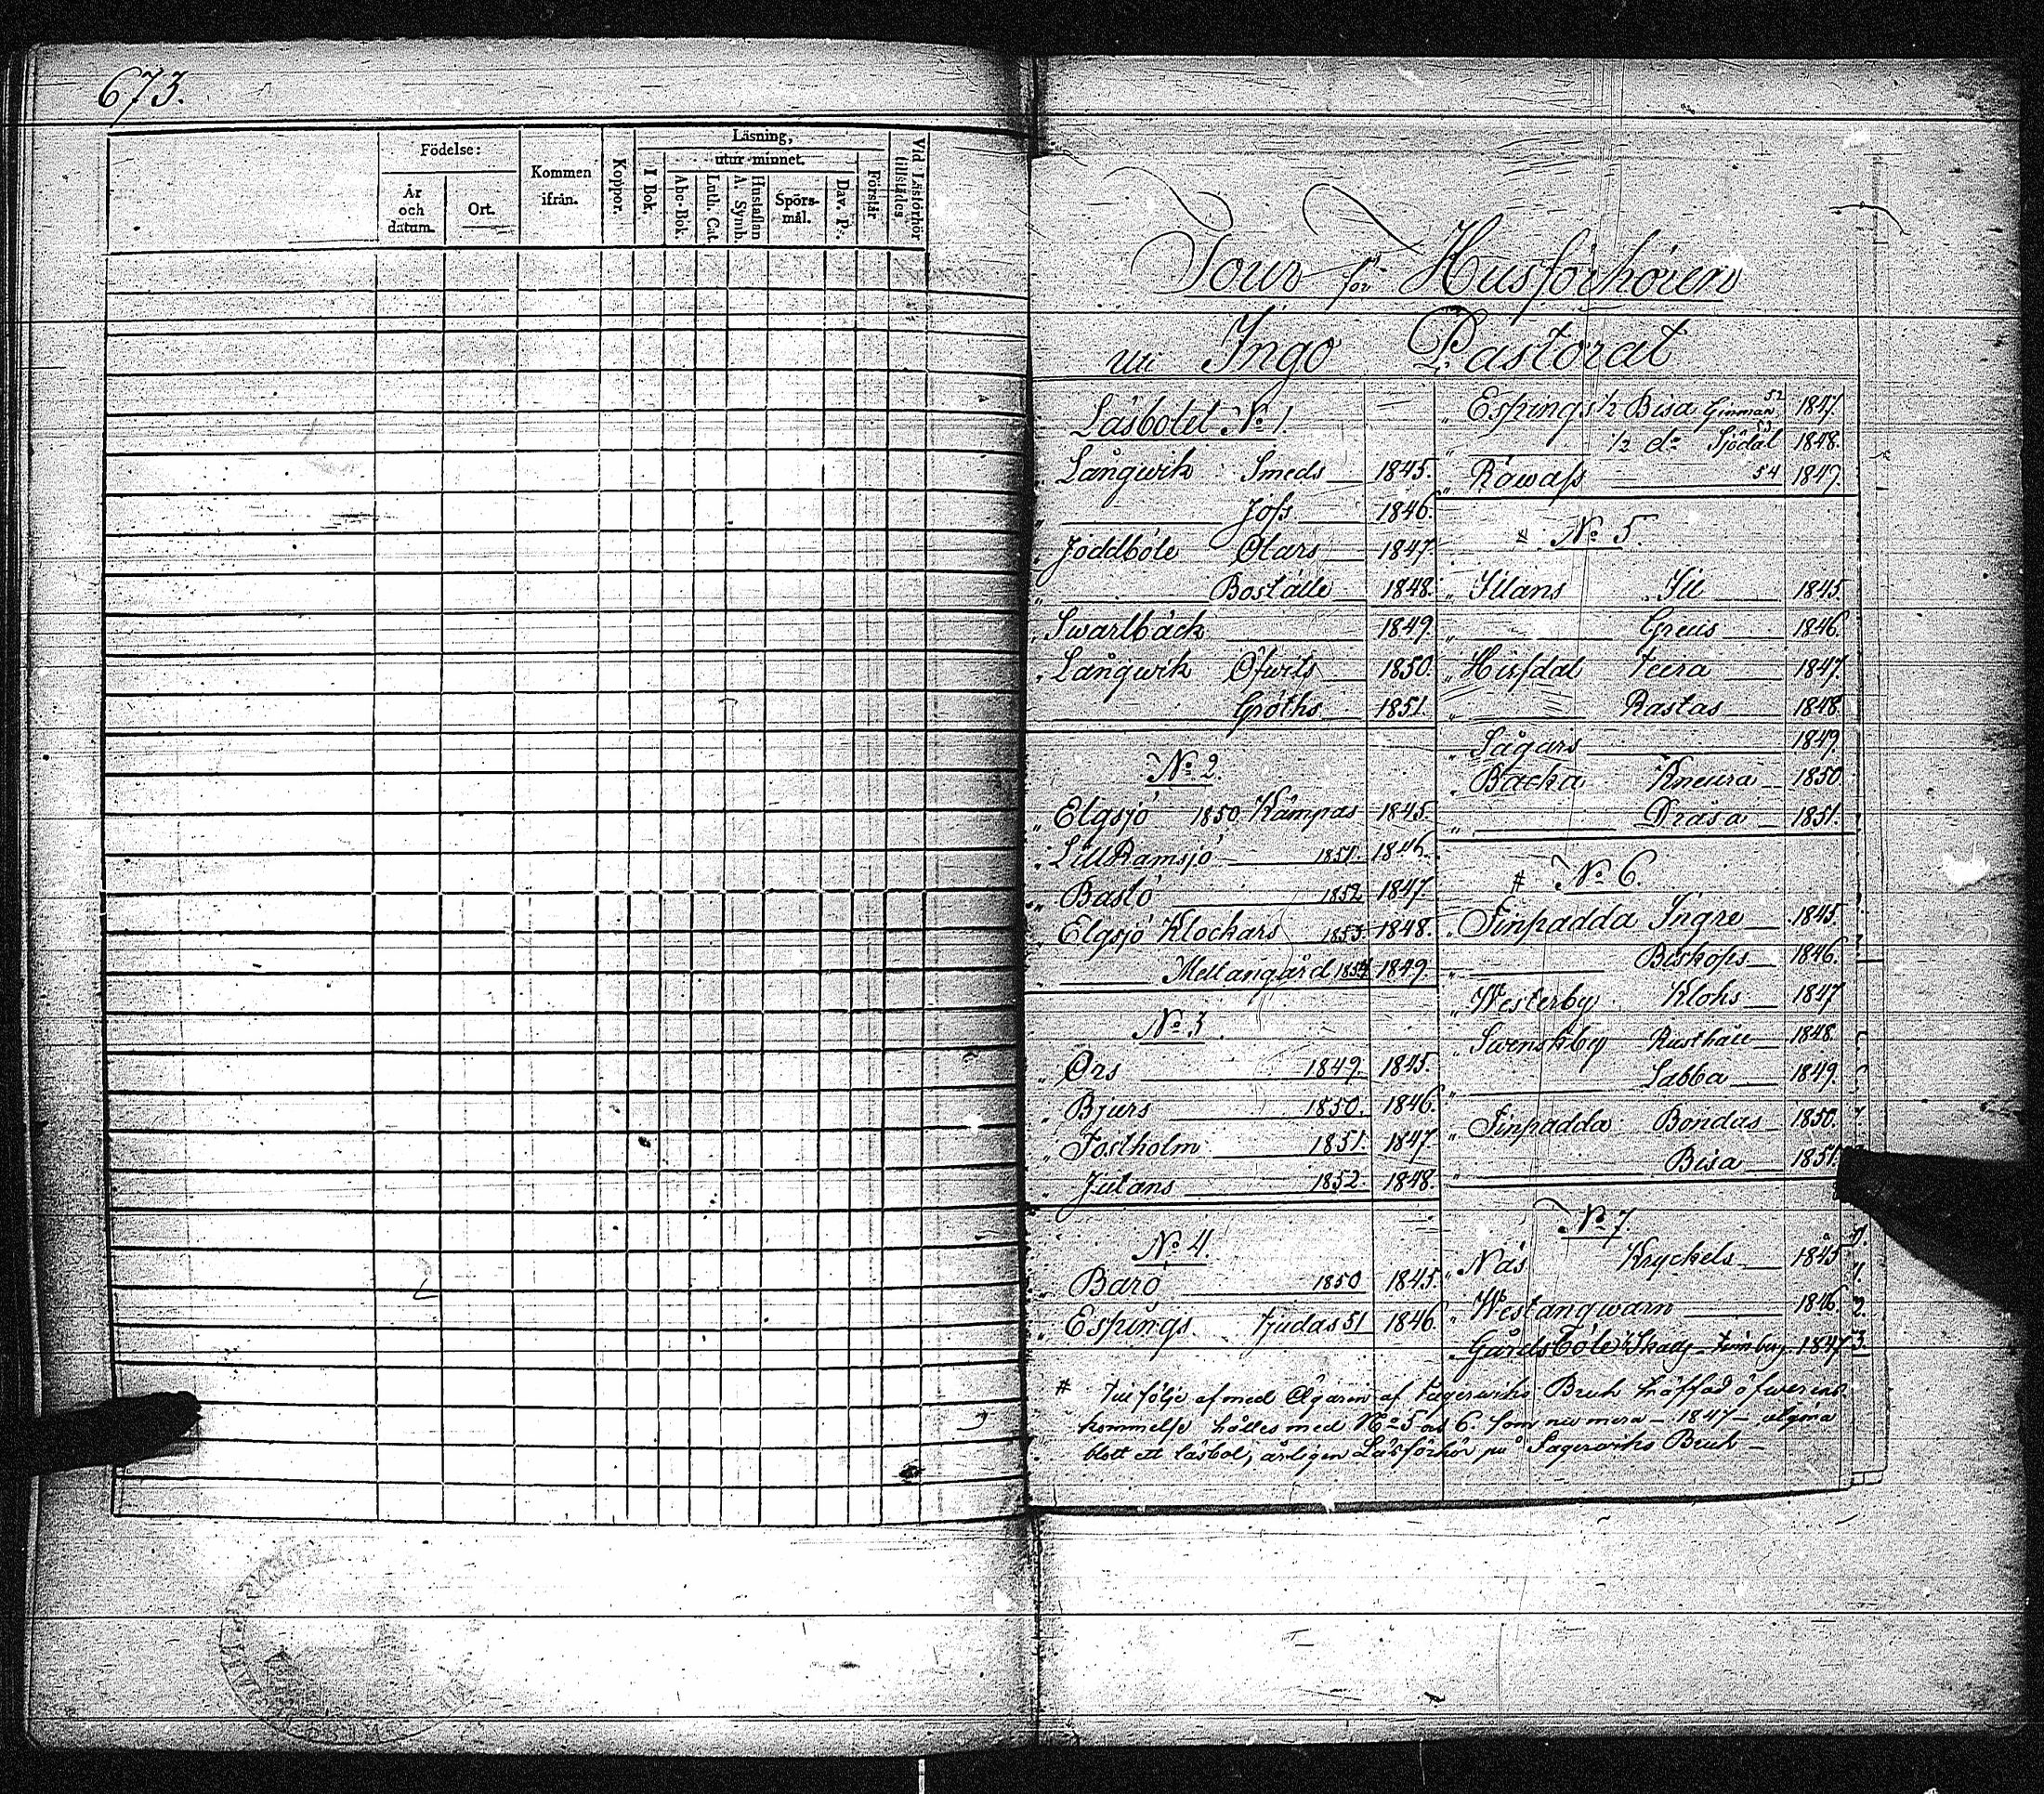 673.
Födelse:
År
och
datum.
Ort.
Kommen
ifrån.
Koppor.
Läsning,
I Bok.
utur minnet.
Abc-Bok.
Luth. Cat.
Hustaflan
A. Symb.
Spörs-
mål.
Dav. Ps.
Förstår
Vid Läsförhör
tillstädes.
Tour för Husförhören
uti Ingo Pastorat
Läsbolet No 1.
" Långwik Smeds 1845.
" Jofs 1846.
" Joddböle Olars 1847.
" Boställe 1848.
" Swartbäck 1849.
" Långwik Öfwits 1850.
Gröths 1851.
No 2.
" Elgsjö 1850 Kämpas 1845.
" LillRamsjö 1851. 1846.
" Bastö 1852 1847.
" Elgsjö Klockars 1853. 1848.
" Mellangård 1854 1849.
No 3.
" Ors 1849. 1845.
" Bjurs 1850. 1846.
" Tostholm 1851. 1847.
" Jutans 1852. 1848.
No 4.
" Barö 1850 1845.
" Espings Tjudas 51 1846.
" Espings ½ Bisa Ginman 52 1847.
" ½ do Sjödal 53 1848.
" Råwass 54 1849.
# No 5.
" Illans Ill 1845.
" Greus 1846.
" Hisfdal Teira 1847.
" Rastas 1848.
" Sågars 1849.
" Backa Kneura 1850
" Dråsa 1851.
# No 6.
" Finpadda Ingre 1845.
" Biskops 1846.
" Westerby Klohs 1847
" Swenskby Rusthåll 1848.
" Labba 1849.
" Finpadda Bondas 1850.
" Bisa 1851.
No 7.
" Näs Kryckels 1845
" Westangwarn 1846.
" Gårdsböle 1847
# Till följe af med Ägaren af Fagerwiks Bruk träffad öfwerens
kommelse hålles med No 5 och 6. som nu mera - 1847 - utgöra
blott ett läsbol, årligen Läsförhör på Fagerwiks Bruk -